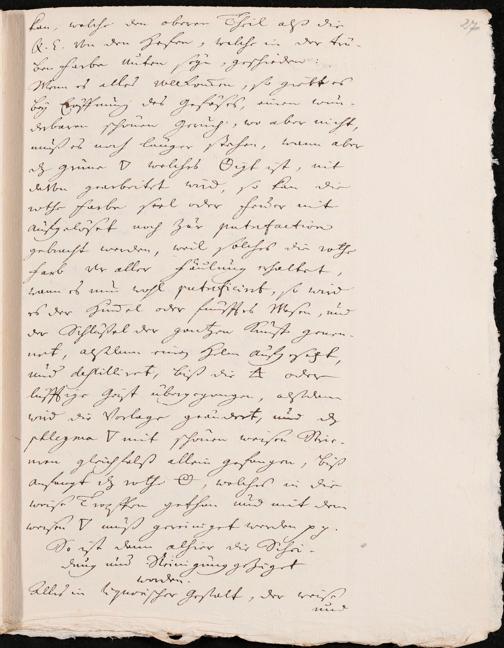 27
kan, welche den oberen Theil alß die
Q. E. von den Hefen, welche in der trü-
ben farbe unten seyn, geschieden:
Wenn es alles vollkommen, so gibt es
bey Eröffnung des Gefäses, einen wun-
derbaren schönen Geruch, wo aber nicht,
muß es noch länger stehen, wann aber
dz grüne ▽ welches Vigt ist, mit
gearbeitet wird, so kan die
rothe farbe oder feuer mit
aufgelöset noch zur putrefaction
gebracht werden, weil solches die rothe
farb vor aller fäulung erhaltet,
wann es nun wohl putrificirt, so wird
es der Himel oder fünfftes Wesen, und
der Schlüßel der gantzen Kunst genen-
net, alßdann einen Helm aufgesetzt,
und destilliret, biß die 🜁 oder
lufftige Geist übergegangen, alßdann
wird die Vorlage geändert, und dz
phlegma ▽ mit schönen weisen Strie-
men gleichfalß allein gefangen, biß
anfangt dz rothe welches in die
weise Tropffen gethan und mit dem
weisen ▽ muß gereiniget werden pp.
So ist dann alhier die Schei-
dung und Reinigung gezeiget
worden.
Alles in liquorischer Gestalt, der weise
und